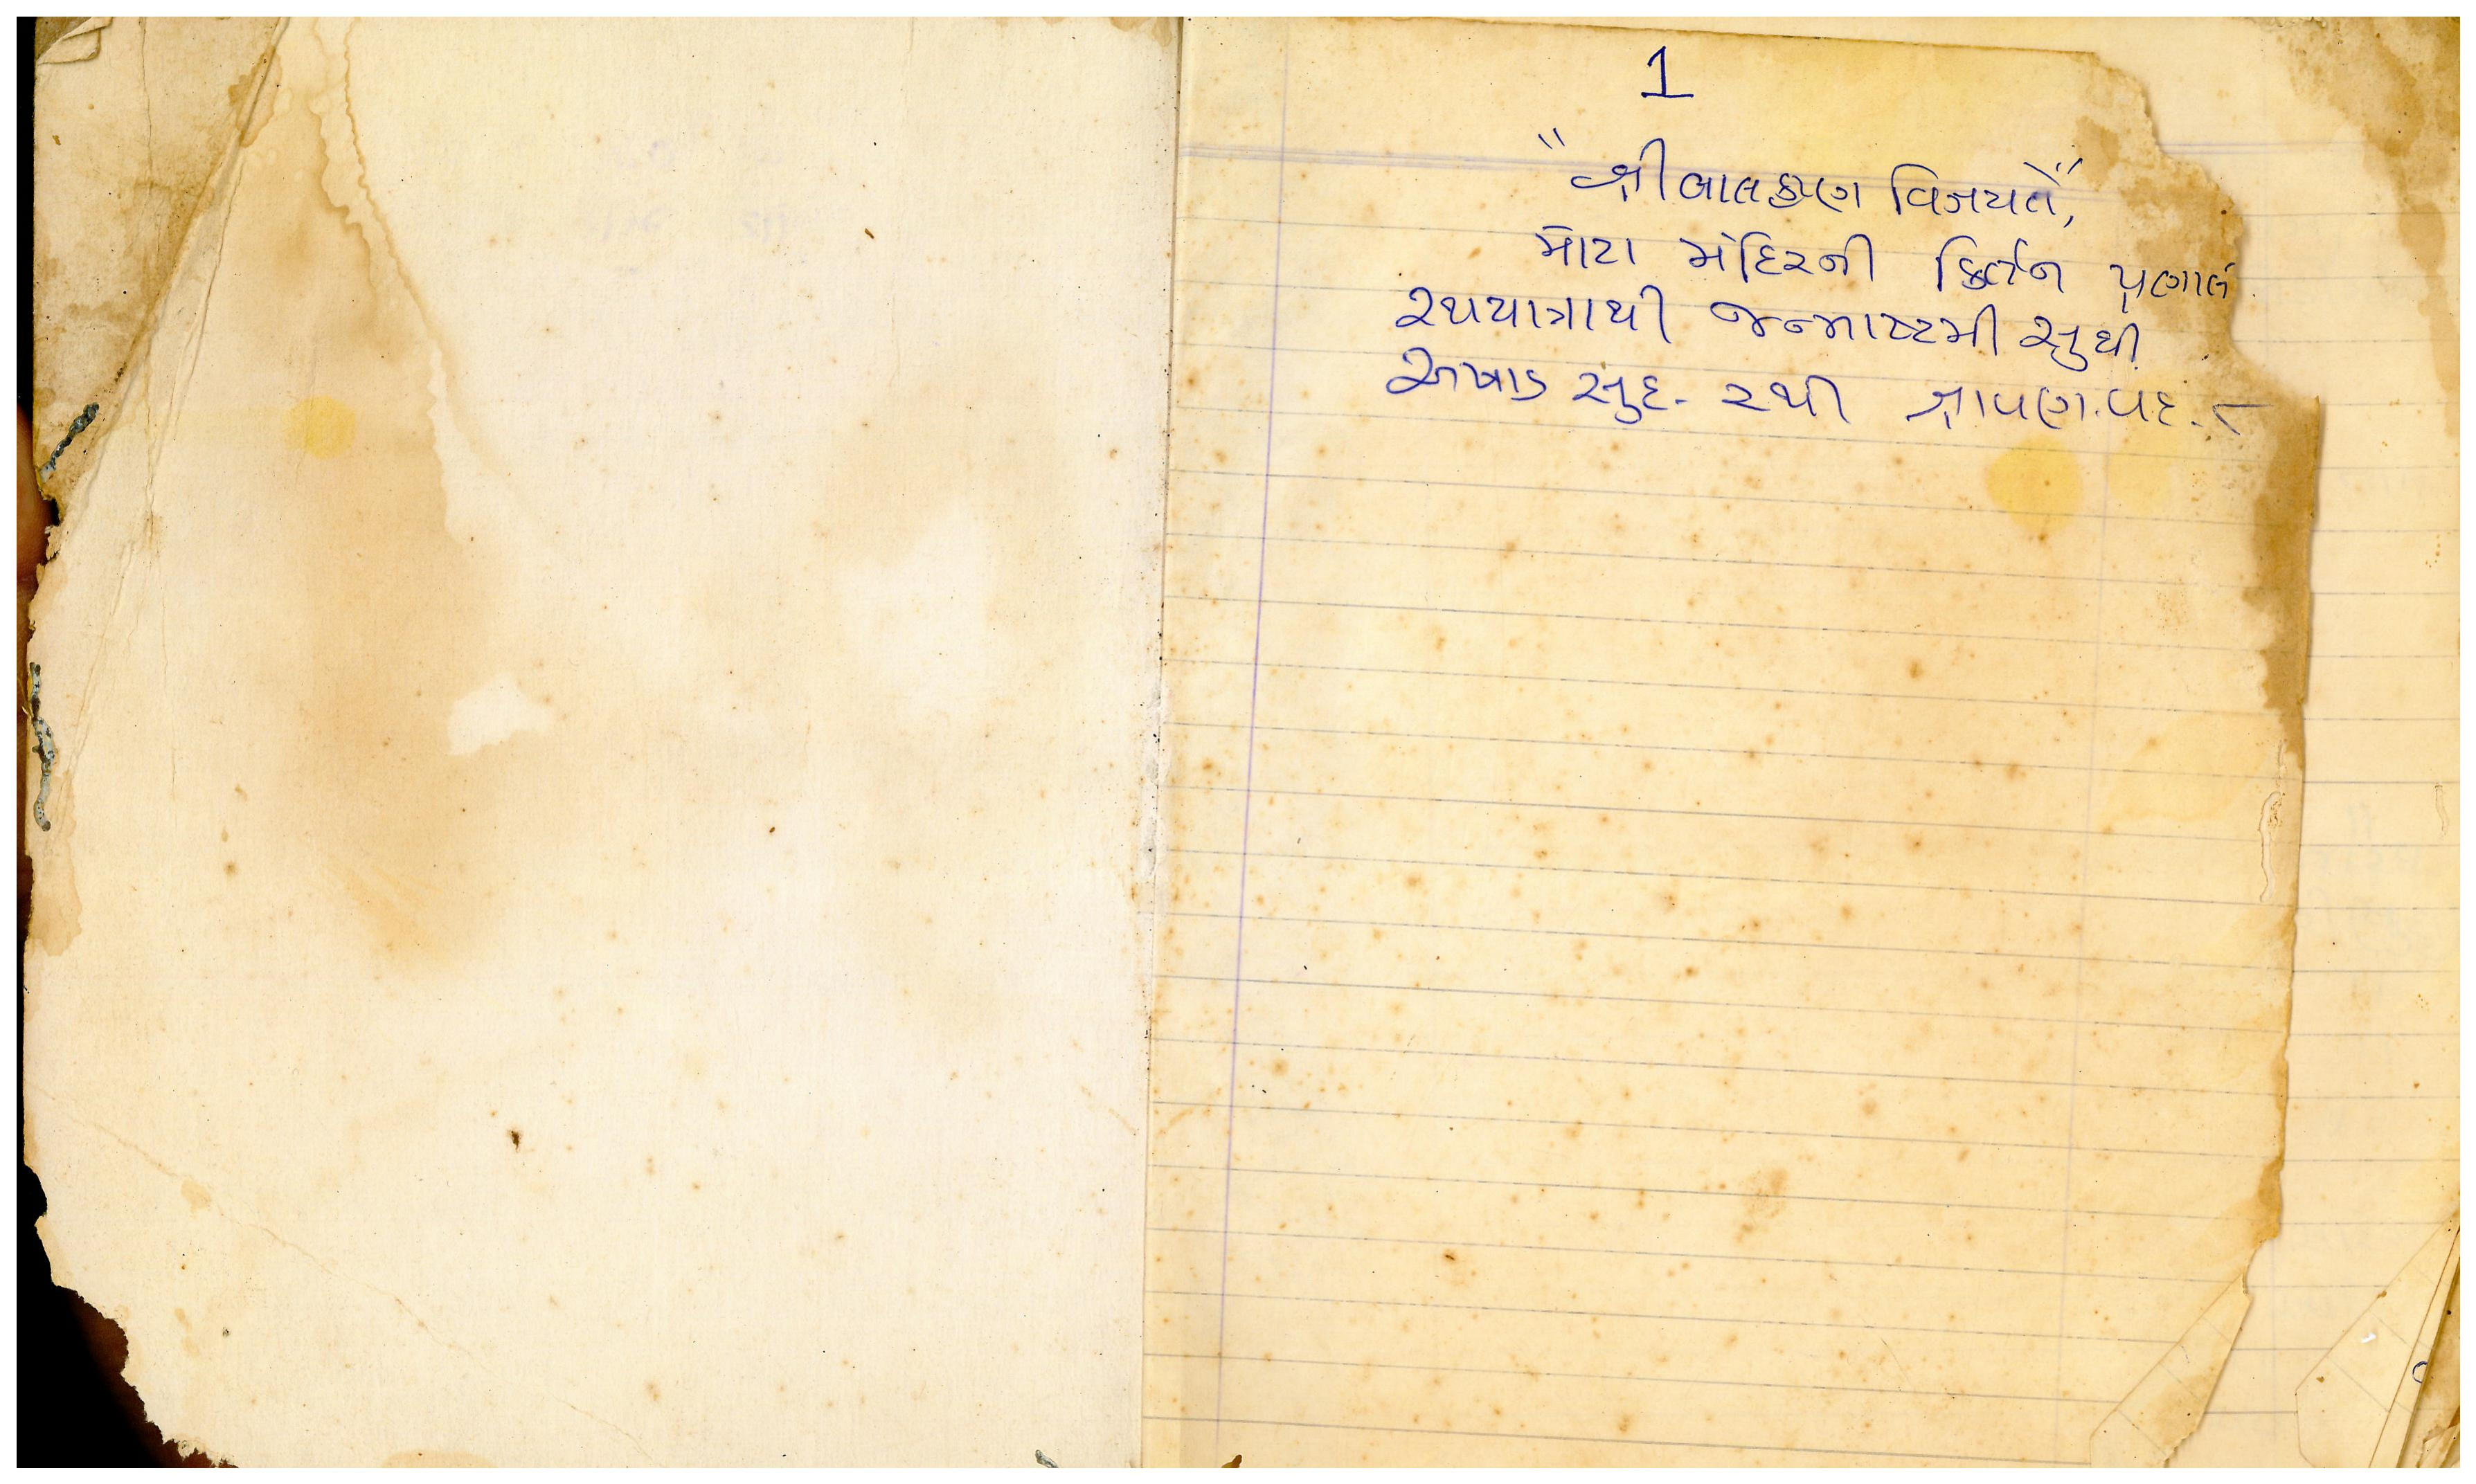 1
"શ્રી બાલકૃષ્ણ વિજયતે"
મોટા મંદિરની કિર્તન પ્રણાલી
રથયાત્રાથી જન્માષ્ટમી સુધી
અષાડ સુદ. ૨થી શ્રાવણ.વદ. ૮